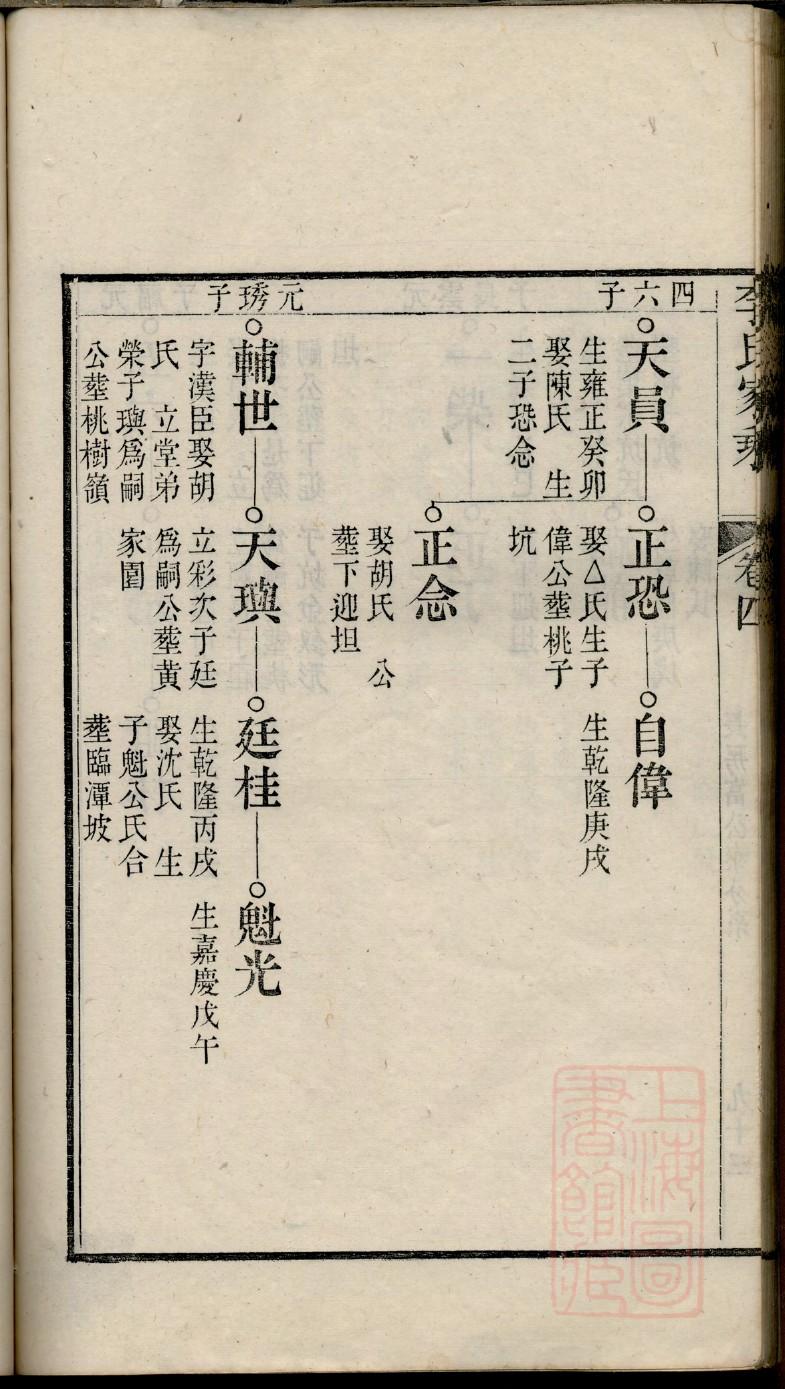 李氏家乘
卷四
四六子
天員
生雍正癸卯
娶陳氏 生
二子恐念
正恐
娶△氏生子
偉公塟桃子
坑
自偉
生乾隆庚戌
正念
娶胡氏 公
塟下迎坦
元琇子
輔世
字漢臣娶胡
氏 立堂弟
榮子璵爲嗣
公塟桃樹嶺
天璵
立彩次子廷
爲嗣公塟黃
家園
廷桂
生乾隆丙戌
娶沈氏 生
子魁公氏合
塟臨潭坡
魁光
生嘉慶戊午
上海圖
書館藏